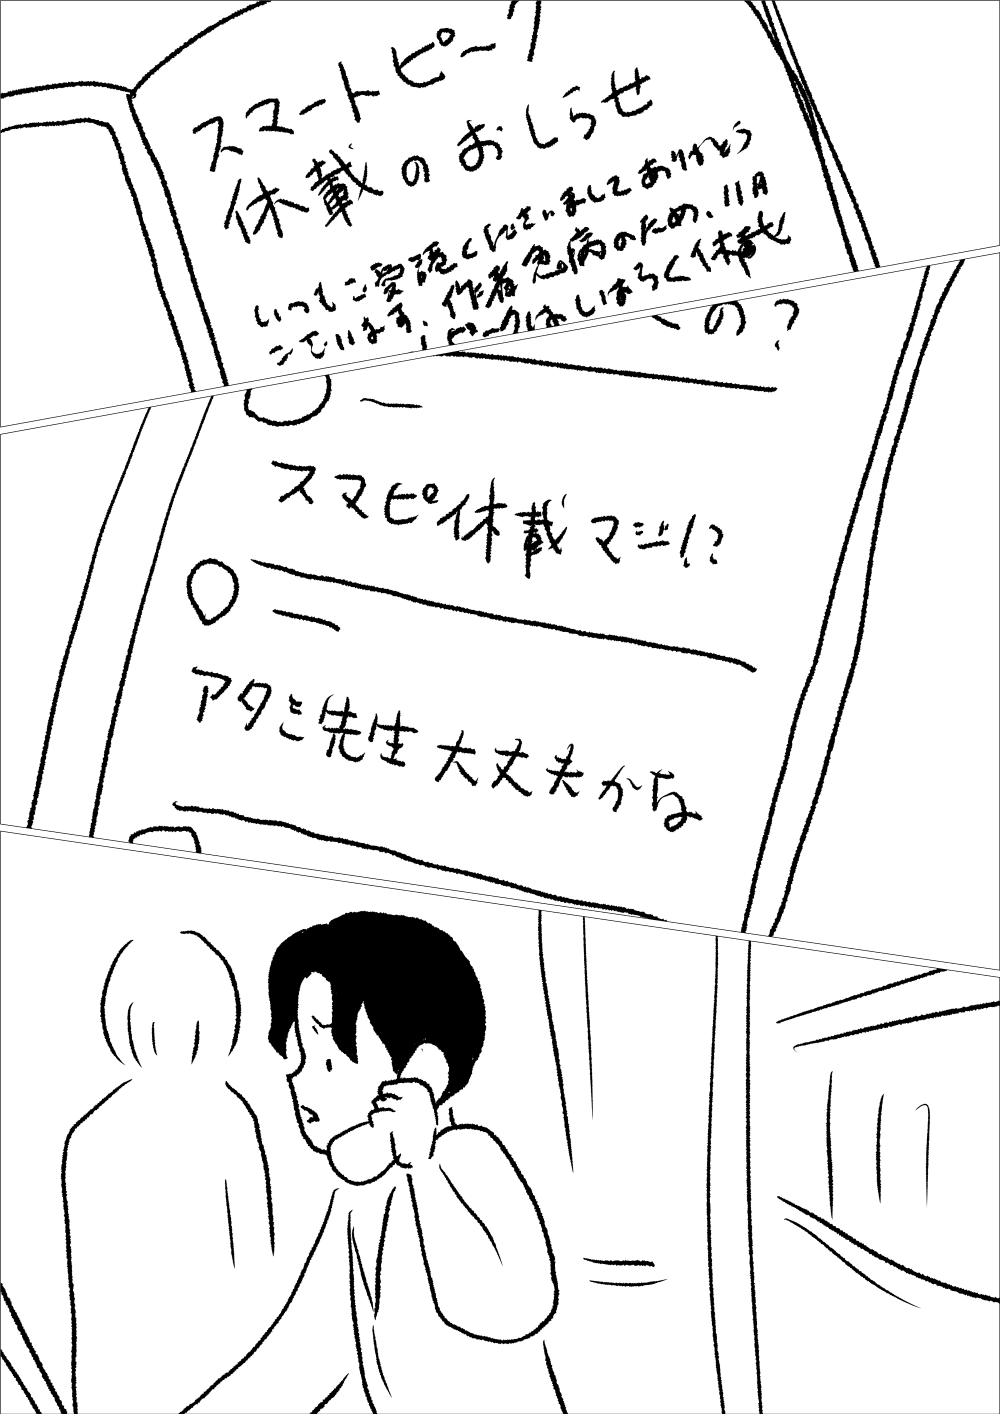 スマートピーク
休載のおしらせ
いつもご愛読くださいましてありがとう
ございます。作者急病のため、11月
ピークはしばらく休載
の？
スマピ休載マジ!?
アタミ先生大丈夫かな